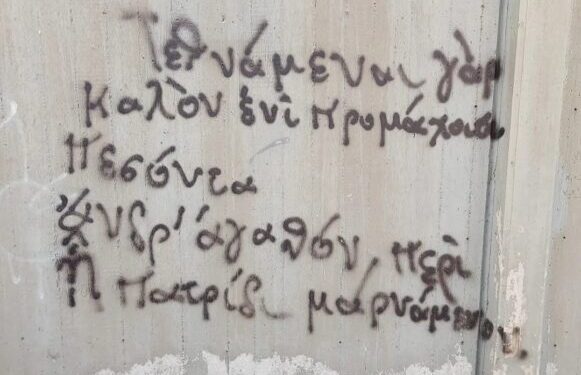 Τεθνάμεναι γὰρ
καλὸν ἐνὶ προμάχοισι
πεσόντα
ἄνδρ' ἀγαθὸν, περὶ
ᾗ πατρίδι μάρνάμενον.